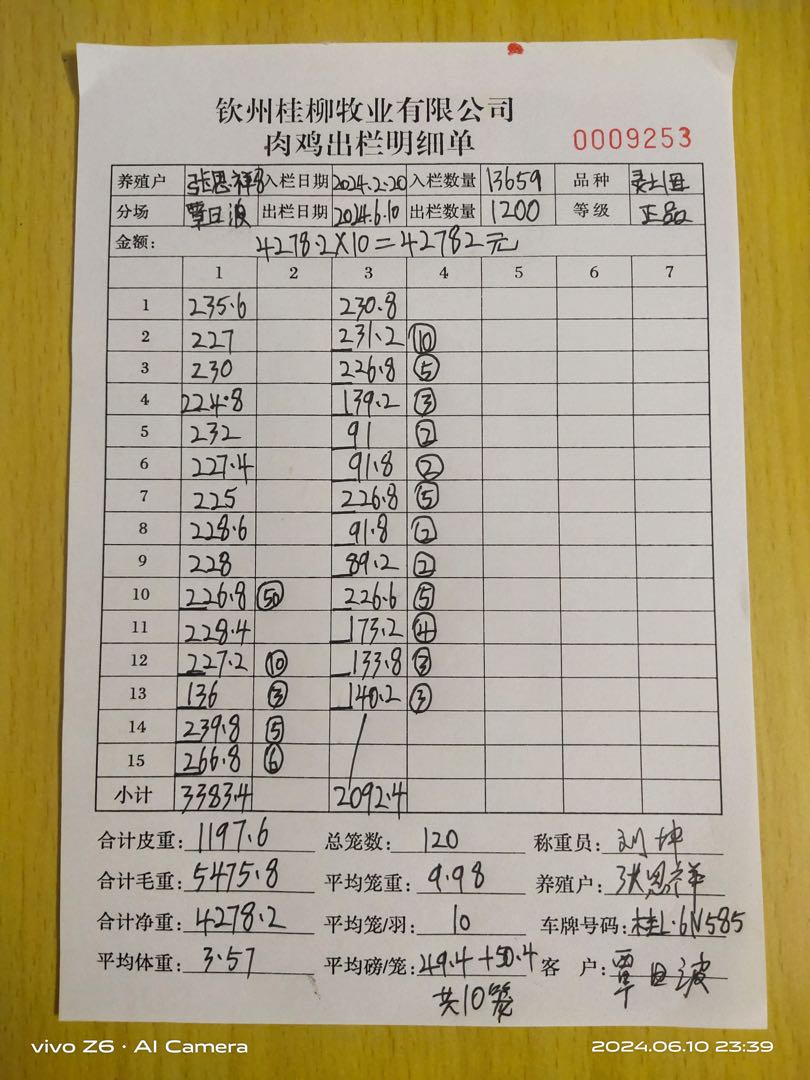 钦州桂柳牧业有限公司
肉鸡出栏明细单
0009253
养殖户 张恩祥 入栏日期 2024.2.20 入栏数量 13659 品种
分场 覃日波 出栏日期 2024.6.10 出栏数量 1200 等级 正品
金额: 4278.2×10=42782元
1 2 3 4 5 6 7
1 235.6 230.8
2 227 231.2 ⑩
3 230 226.8 ⑤
4 224.8 139.2 ③
5 232 91 ②
6 227.4 91.8 ②
7 225 226.8 ⑤
8 228.6 91.8 ②
9 228 89.2 ②
10 226.8 ㊿ 226.6 ⑤
11 228.4 173.2 ④
12 227.2 ⑩ 133.8 ③
13 136 ③ 140.2 ③
14 239.8 ⑤ /
15 266.8 ⑥
小计 3383.4 2092.4
合计皮重: 1197.6 总笼数: 120 称重员: 刘坤
合计毛重: 5475.8 平均笼重: 9.98 养殖户: 张恩祥
合计净重: 4278.2 平均笼/羽: 10 车牌号码: 桂L·6N585
平均体重: 3.57 平均磅/笼: 49.4+50.4 客 户: 覃日波
共10笼
vivo Z6 · AI Camera 2024.06.10 23:39